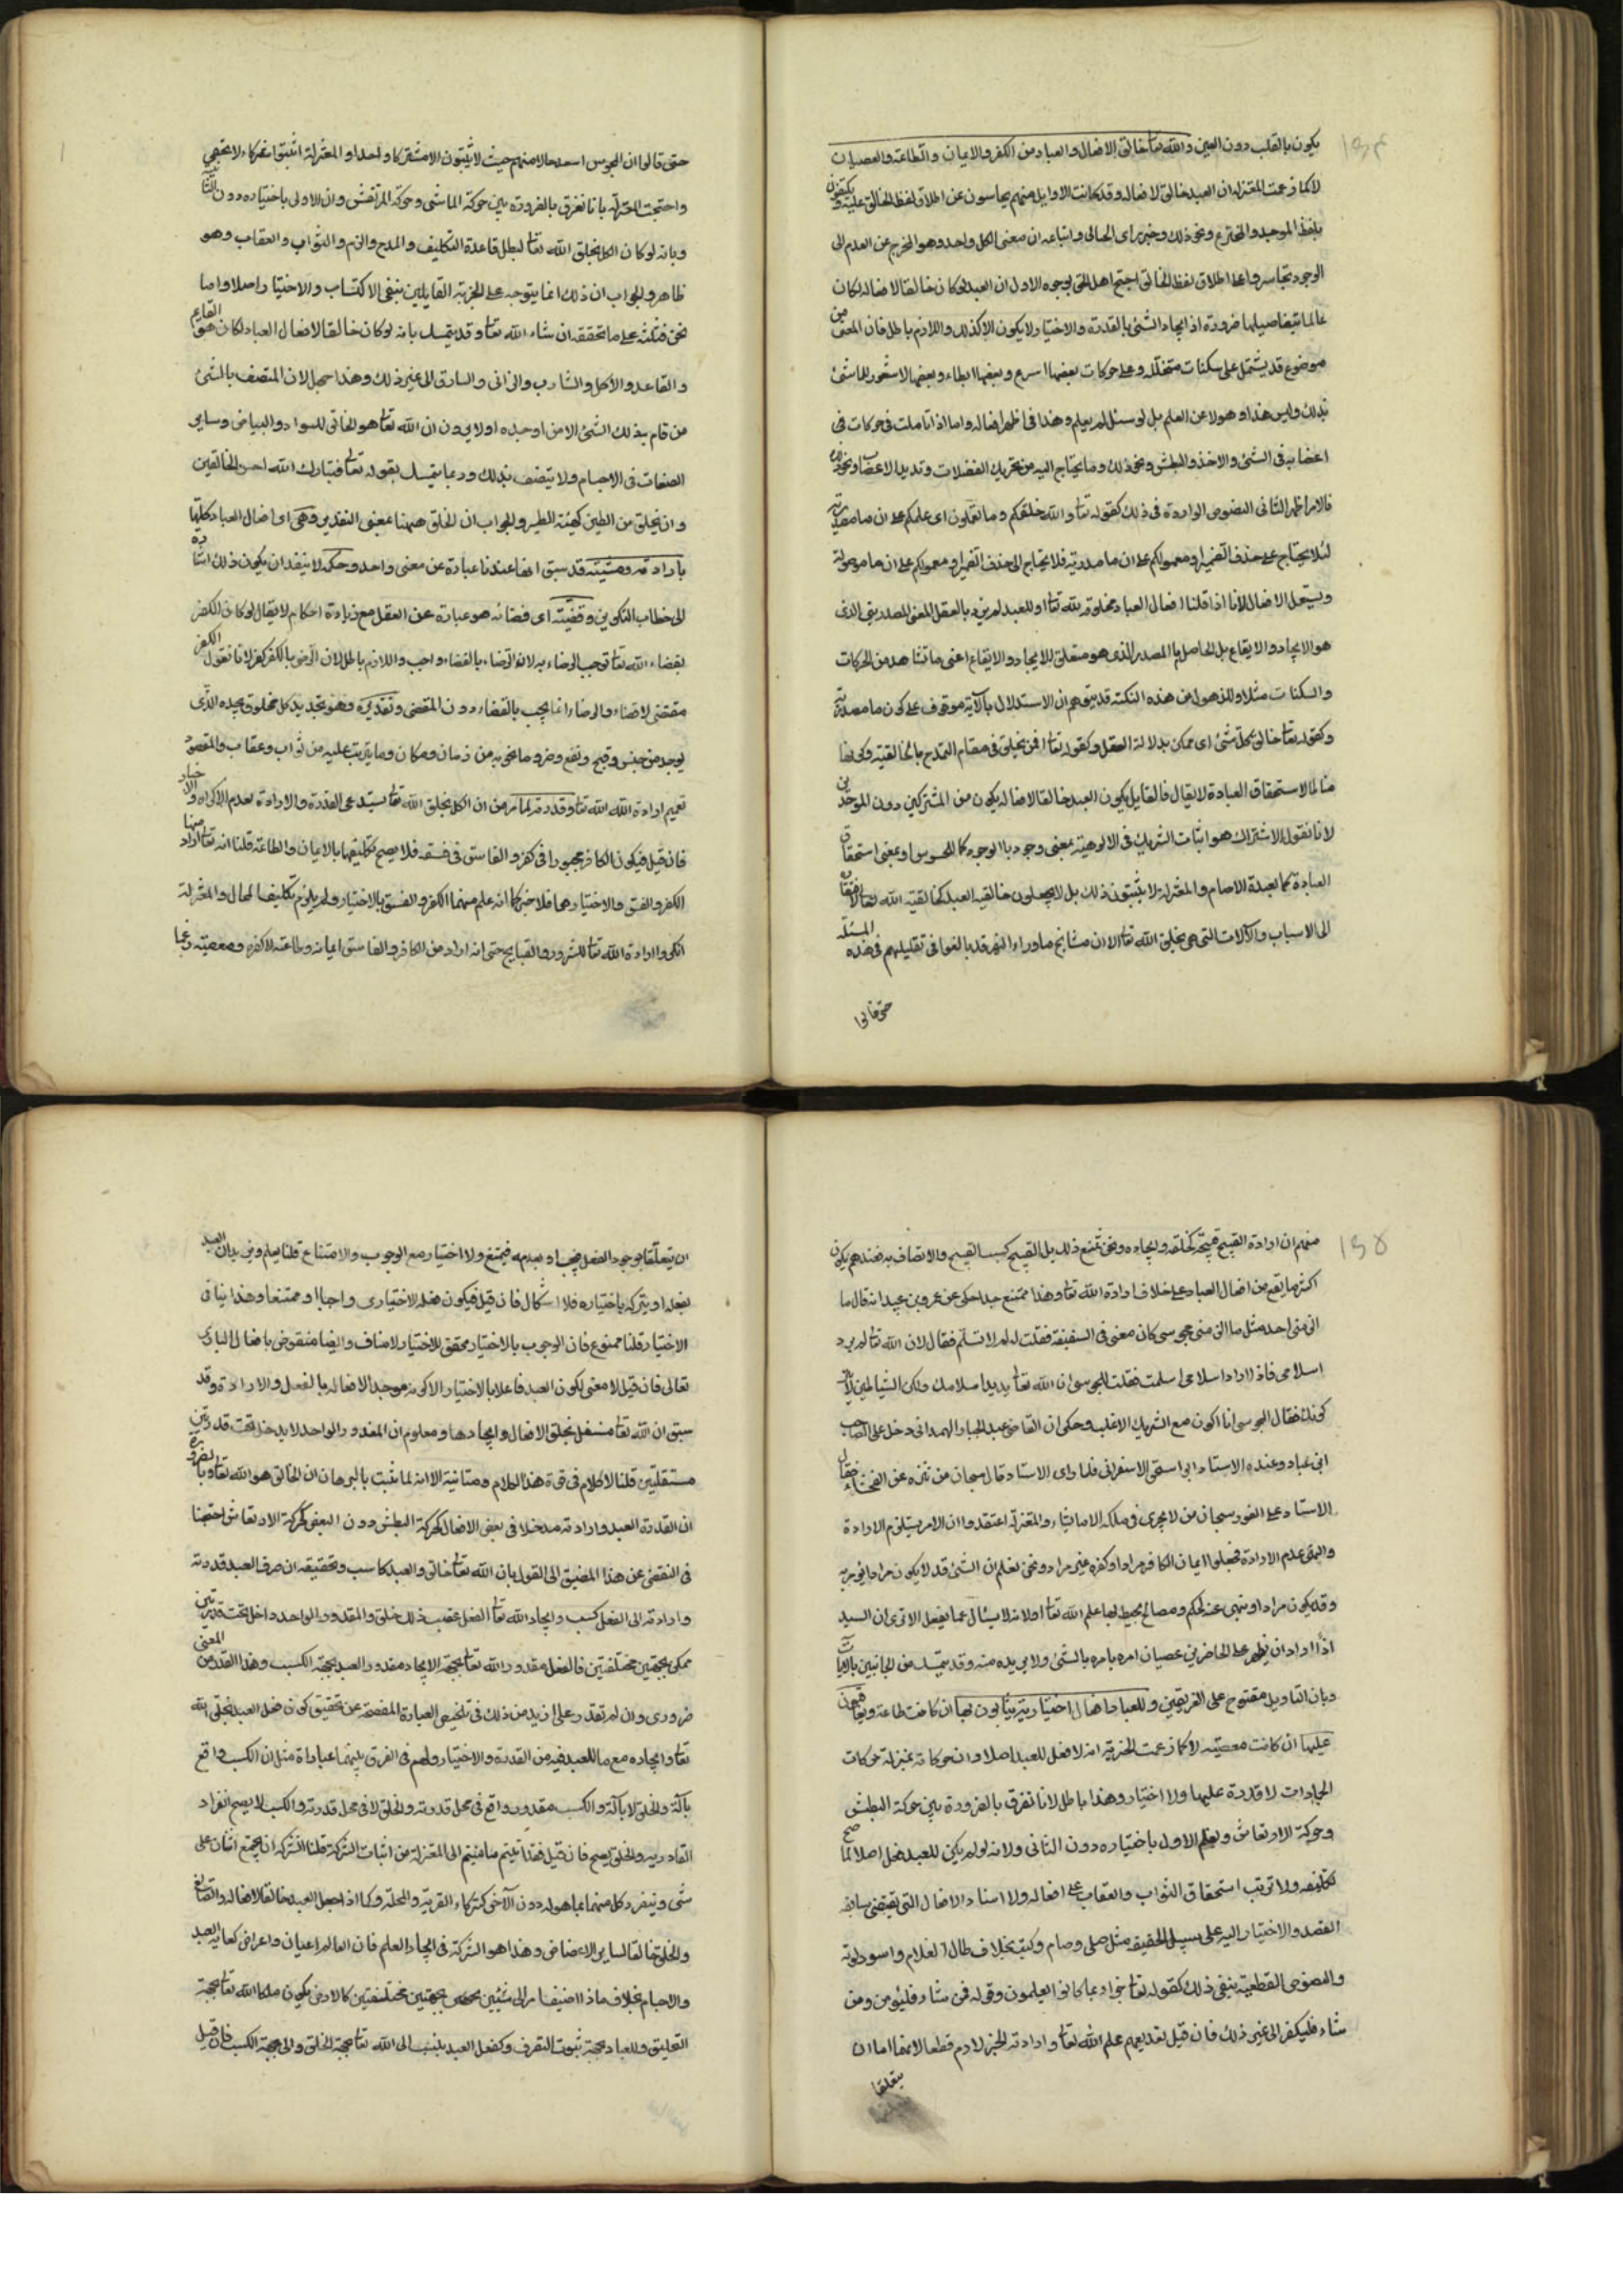 يكون بالقلب دون العين والله تعا خالق الافعال والعباد من الكفر والايمان والطاعة والعصيان
لا كما زعمت المعتزله ان العبد خالق لافعاله وقد كانت الاوايل منهم يحاسون عن اطلاق لفظ الخالق عليه ويكتفون
بلفظ الموجد والمخترع ونحو ذلك وحين راى الجبائى واتباعه ان معنى الكل واحد وهو المخرج عن العدم الى
الوجود تجاسروا على اطلاق لفظ الخالق احتج اهل الحق بوجوه الاول ان العبد لو كان خالقا لافعاله لكان
عالما بتفاصيلها ضرورة اذ ايجاد الشئ بالقدرة والاختيار لا يكون الا كذلك واللازم باطل فان المشى من
موضوع قد يشتمل على سكنات متخللة وعلى حركات بعضها اسرع وبعضها ابطاء وبعضها لا شعور للماشئ
بذلك وليس هذا وهولا عن العلم بل لو سئل لم يعلم وهذا فى اظهر افعاله واما اذا تاملت فى حركات فى
اعضايه فى الشئ والاخذ والبطش ونحو ذلك وما يحتاج اليه من تحريك الفضلات وتمديد الاعصاب ونحو ذلك
فالامر اظهر الثانى النصوص الواردة فى ذلك كقوله تعا والله خلقكم وما تعملون اى عملكم على ان ما مصدرية
لئلا يحتاج على حذف الضمير او معمولكم على ان ما مصدرية فلا يحتاج الى حذف الضمير او معمولكم على ان ما موصولة
ويشمل الافعال لانا اذا قلنا افعال العباد مخلوقة لله تعا او للعبد لم يرد بالعقل المعنى المصدريتى الذى
هو الايجاد والايقاع بل الحاصل بالمصدر الذى هو متعلق للايجاد والايقاع اعنى ما نشاهد من الحركات
والسكنات مثلا وللذهول عن هذه النكتة قد يتوهم ان الاستدلال بالآية موقوف على كون ما مصدرية
وكقوله تعا خالق كل شئ اى ممكن بدلالة العقل وكقوله تعا افمن يخلق فى مقام التمدح بالخالقية وكونها
مناطا لاستحقاق العبادة لا يقال فالقايل بكون العبد خالقا لافعاله يكون من المشركين دون الموحدين
لانا نقول الاشتراك هو اثبات الشريك فى الالوهية بمعنى وجود باالوجود كما للمجوس او بمعنى استحقاق
العبادة كما لعبدة الاصنام والمعتزلة لا يثبتون ذلك بل لا يجعلون خالقيه العبد كخالقية الله تعالى لافتقاره
الى الاسباب والآلات التى هى بخلق الله تعا الا ان مشايخ ماوراء النهر قد بالغوا فى تقليلهم فى هذه المسئلة
حتى قالوا
حتى قالوا ان المجوس اسعد حالا منهم حيث لا يثبتون الا مشتركا واحدا والمعتزلة اثبتوا شركاء لا تحصى
واحتجت المعتزلة بانا نفرق بالضرورة بين حركة الماشى وحركة المرتعش وان الاولى باختياره دون الثانية
وبانه لو كان الكل بخلق الله تعا لبطل قاعدة التكليف والمدح والذم والثواب والعقاب وهو
ظاهر والجواب ان ذلك انما يتوجه على الجبرية القايلين بنفى الاكتساب والاختيار اصلا واما
نحن فنثبته على ما نحققه ان شاء الله تعا وقد يتمسك بانه لو كان خالقا لافعال العباد لكان هو القايم
والقاعد والآكل والشارب والزانى والسارق الى غير ذلك وهذا جهل لان المتصف بالشئ
من قام به ذلك الشئ لا من اوجده اولا يرون ان الله تعا هو الخالق للسواد والبياض وساير
الصفات فى الاجسام ولا يتصف بذلك وربما يتمسك بقوله تعا فتبارك الله احسن الخالقين
وان يخلق من الطين كهيئة الطير والجواب ان الخلق ههنا بمعنى التقدير وهى اى افعال العباد كلها
بارادته ومشيته قد سبق انها عندنا عبارة عن معنى واحد وحكمه لا يبعد ان يكون ذلك اشارة
الى خطاب التكوين وقضيته اى قضائه هو عبارة عن العقل مع زيادة احكام لا يقال لو كان الكفر
بقضاء الله تعا لوجب الرضاء به لان الرضاء بالقضاء واجب واللازم باطل لان الرضى بالكفر كفر لانا نقول الكفر
مقتضى لا قضاء والرضاء انما يجب بالقضاء دون المقتضى وتقديره وهو تحديد كل مخلوق بحده الذى
يوجد من حسن وقبح ونفع وضر وما يحويه من زمان ومكان وما يترتب عليه من ثواب وعقاب والمقصود
تعميم ارادة الله الله تعا وقدرته لما مر من ان الكل بخلق الله تعا يستدعى القدرة والارادة لعدم الاكراه والاجبار
فان قيل فيكون الكافر مجبورا فى كفره والفاسق فى فسقه فلا يصح تكليفها بالايمان والطاعة قلنا انه تعا اراد منها
الكفر والفسق والاختيارهما فلا جبر كما انه علم منهما الكفر والفسق بالاختيار ولم يلزم تكليف المحال والمعتزلة
انكروا ارادة الله تعا للشرور والقبايح حتى انه اراد من الكافر والفاسق ايمانه وطاعته لا كفره ومعصيته زعما
منهم ان ارادة القبيح قبيحة كخلقه وايجاده ونحن نمنع ذلك بل القبيح كسب القبيح والاتصاف به فعندهم يكون
اكثر ما يقع من افعال العباد على خلاف ارادة الله تعا وهذا ممتنع جدا حكى عن عمرو بن عبيد انه قال ما
الزمنى احد مثل ما الزمنى مجوسى كان معنى فى السفينة فقلت له لم لا تسلم فقال لان الله تعا لم يرد
اسلامى فاذا اراد اسلامى اسلمت فقلت للمجوسى ان الله تعا يريد اسلامك ولكن الشياطين لا
يتركونك فقال المجوسى انا اكون مع الشريك الاغلب وحكى ان القاضى عبد الجبار الهمدانى دخل على الصاحب
ابن عباد وعنده الاستاد ابى اسحق الاسفرانى فلما راى الاستاد قال سبحان من تنزه عن الفحشاء فقال
الاستاد على الفور سبحان من لا يجرى فى ملكه الا ما يشاء والمعتزلة اعتقدوا ان الامر يستلزم الارادة
والنهى عدم الارادة فجعلوا ايمان الكافر مرادا وكفره غير مراد ونحن نعلم ان الشئ قد لا يكون مرادا يؤمر به
وقد يكون مرادا وينهى عنه لحكم ومصالح يحيط بها علم الله تعا اولانه لا يسئال عما يفعل الا ترى ان السيد
اذا اراد ان يظهر على الحاضرين عصيان امره يامره بالشئ ولا يريده منه وقد يتمسك من الجانبين بالآيات
وباب التاويل مفتوح على الفريقين وللعباد افعال اختيارية يثابون بها ان كانت طاعة ويعاقبون
عليها ان كانت معصية لا كما زعمت الجبرية انه لا فعل للعبد اصلا وان حركاته بمنزلة حركات
الجمادات لا قدرة عليها ولا اختيار وهذا باطل لانا نفرق بالضرورة بين حركة البطش
وحركة الارتعاش ونعلم الاول باختياره دون الثانى ولانه لو لم يكن للعبد فعل اصلا لما صح
تكليفه ولا ترتب استحقاق الثواب والعقاب على افعاله ولا اسناد الافعال التى يقتضى سابقه
القصد والاختيار اليه على سبيل الحقيقه مثل صلى وصام وكتب بخلاف طال الغلام واسود لونه
والنصوص القطعية ينفى ذلك كقوله تعا جزاء بما كانوا يعلمون وقوله فمن شاء فليؤمن ومن
شاء فليكفر الى غير ذلك فان قيل بعد تعميم علم الله تعا وارادته الجبر لازم قطعا لانها اما ان
يتعلقا
ان يتعلقا بوجود الفعل فيجب او بعدمه فيمتنع ولا اختيار مع الوجوب والامتناع قلنا يعلم ويريد ان العبد
يفعله او يتركه باختياره فلا اشكال فان قيل فيكون فعله الاختيارى واجبا او ممتنعا وهذا ينافى
الاختيار قلنا ممنوع فان الوجوب بالاختيار محقق للاختيار لا مناف وايضا منقوض بافعال البارى
تعالى فان قيل لا معنى لكون العبد فاعلا بالاختيار الا كونه موجدا لافعاله بالفعل والارادة وقد
سبق ان الله تعا مستقل بخلق الافعال وايجادها ومعلوم ان المقدور الواحد لا يدخل تحت قدرتين
مستقلتين قلنا لا كلام فى قوة هذا الكلام ومتانته الا انه لما ثبت بالبرهان ان الخالق هو الله تعا وبالضرورة
ان القدرة العبد وارادته مدخلا فى بعض الافعال كحركة البطش دون البعض كحركة الارتعاش احتجنا
فى التفصى عن هذا المضيق الى القول بان الله تعا خالق والعبد كاسب وتحقيقه ان صرف العبد قدرته
وارادته الى الفعل كسب وايجاد الله تعا الفعل عقيب ذلك خلق والمقدور الواحد داخل تحت قدرتين
ممكن بجهتين مختلفتين فالفعل مقدور الله تعا بجهة الايجاد مقدور العبد بجهة الكسب وهذا القدر من المعنى
ضرورى وان لم نقدر على ازيد من ذلك فى تلخيص العبارة المفصحة عن تحقيق كون فعل العبد بخلق الله
تعا وايجاده مع ما للعبد فيه من القدرة والاختيار ولهم فى الفرق بينهما عبارات مثل ان الكسب واقع
بآلة والخلق لا بآلة والكسب مقدور واقع فى محل قدرته والخلق لا فى محل قدرته والكسب لا يصح انفراد
القادر به والخلق يصح فان قيل فقد اثبتم ما نسبتم الى المعتزلة من اثبات الشركة قلنا الشركة ان يجتمع اثنان على
شئ وينفرد كل منهما بما هو له دون الآخر كشركاء القرية والمحلة وكما اذا جعل العبد خالقا لافعاله والصانع
والخلق خالقا لساير الاعضاض وهذا هو الشركة فى ايجاد العلم فان العالم اعيان واعراض كعاية العبد
والاجسام بخلاف ما اذا اضيف امر الى شيئين بجهتين مختلفتين كالارض يكون ملكا لله تعا بجهة
التخليق وللعباد بجهة ثبوت التصرف وكفعل العبد ينسب الى الله تعا بجهة الخلق والى بجهة الكسب فان قيل